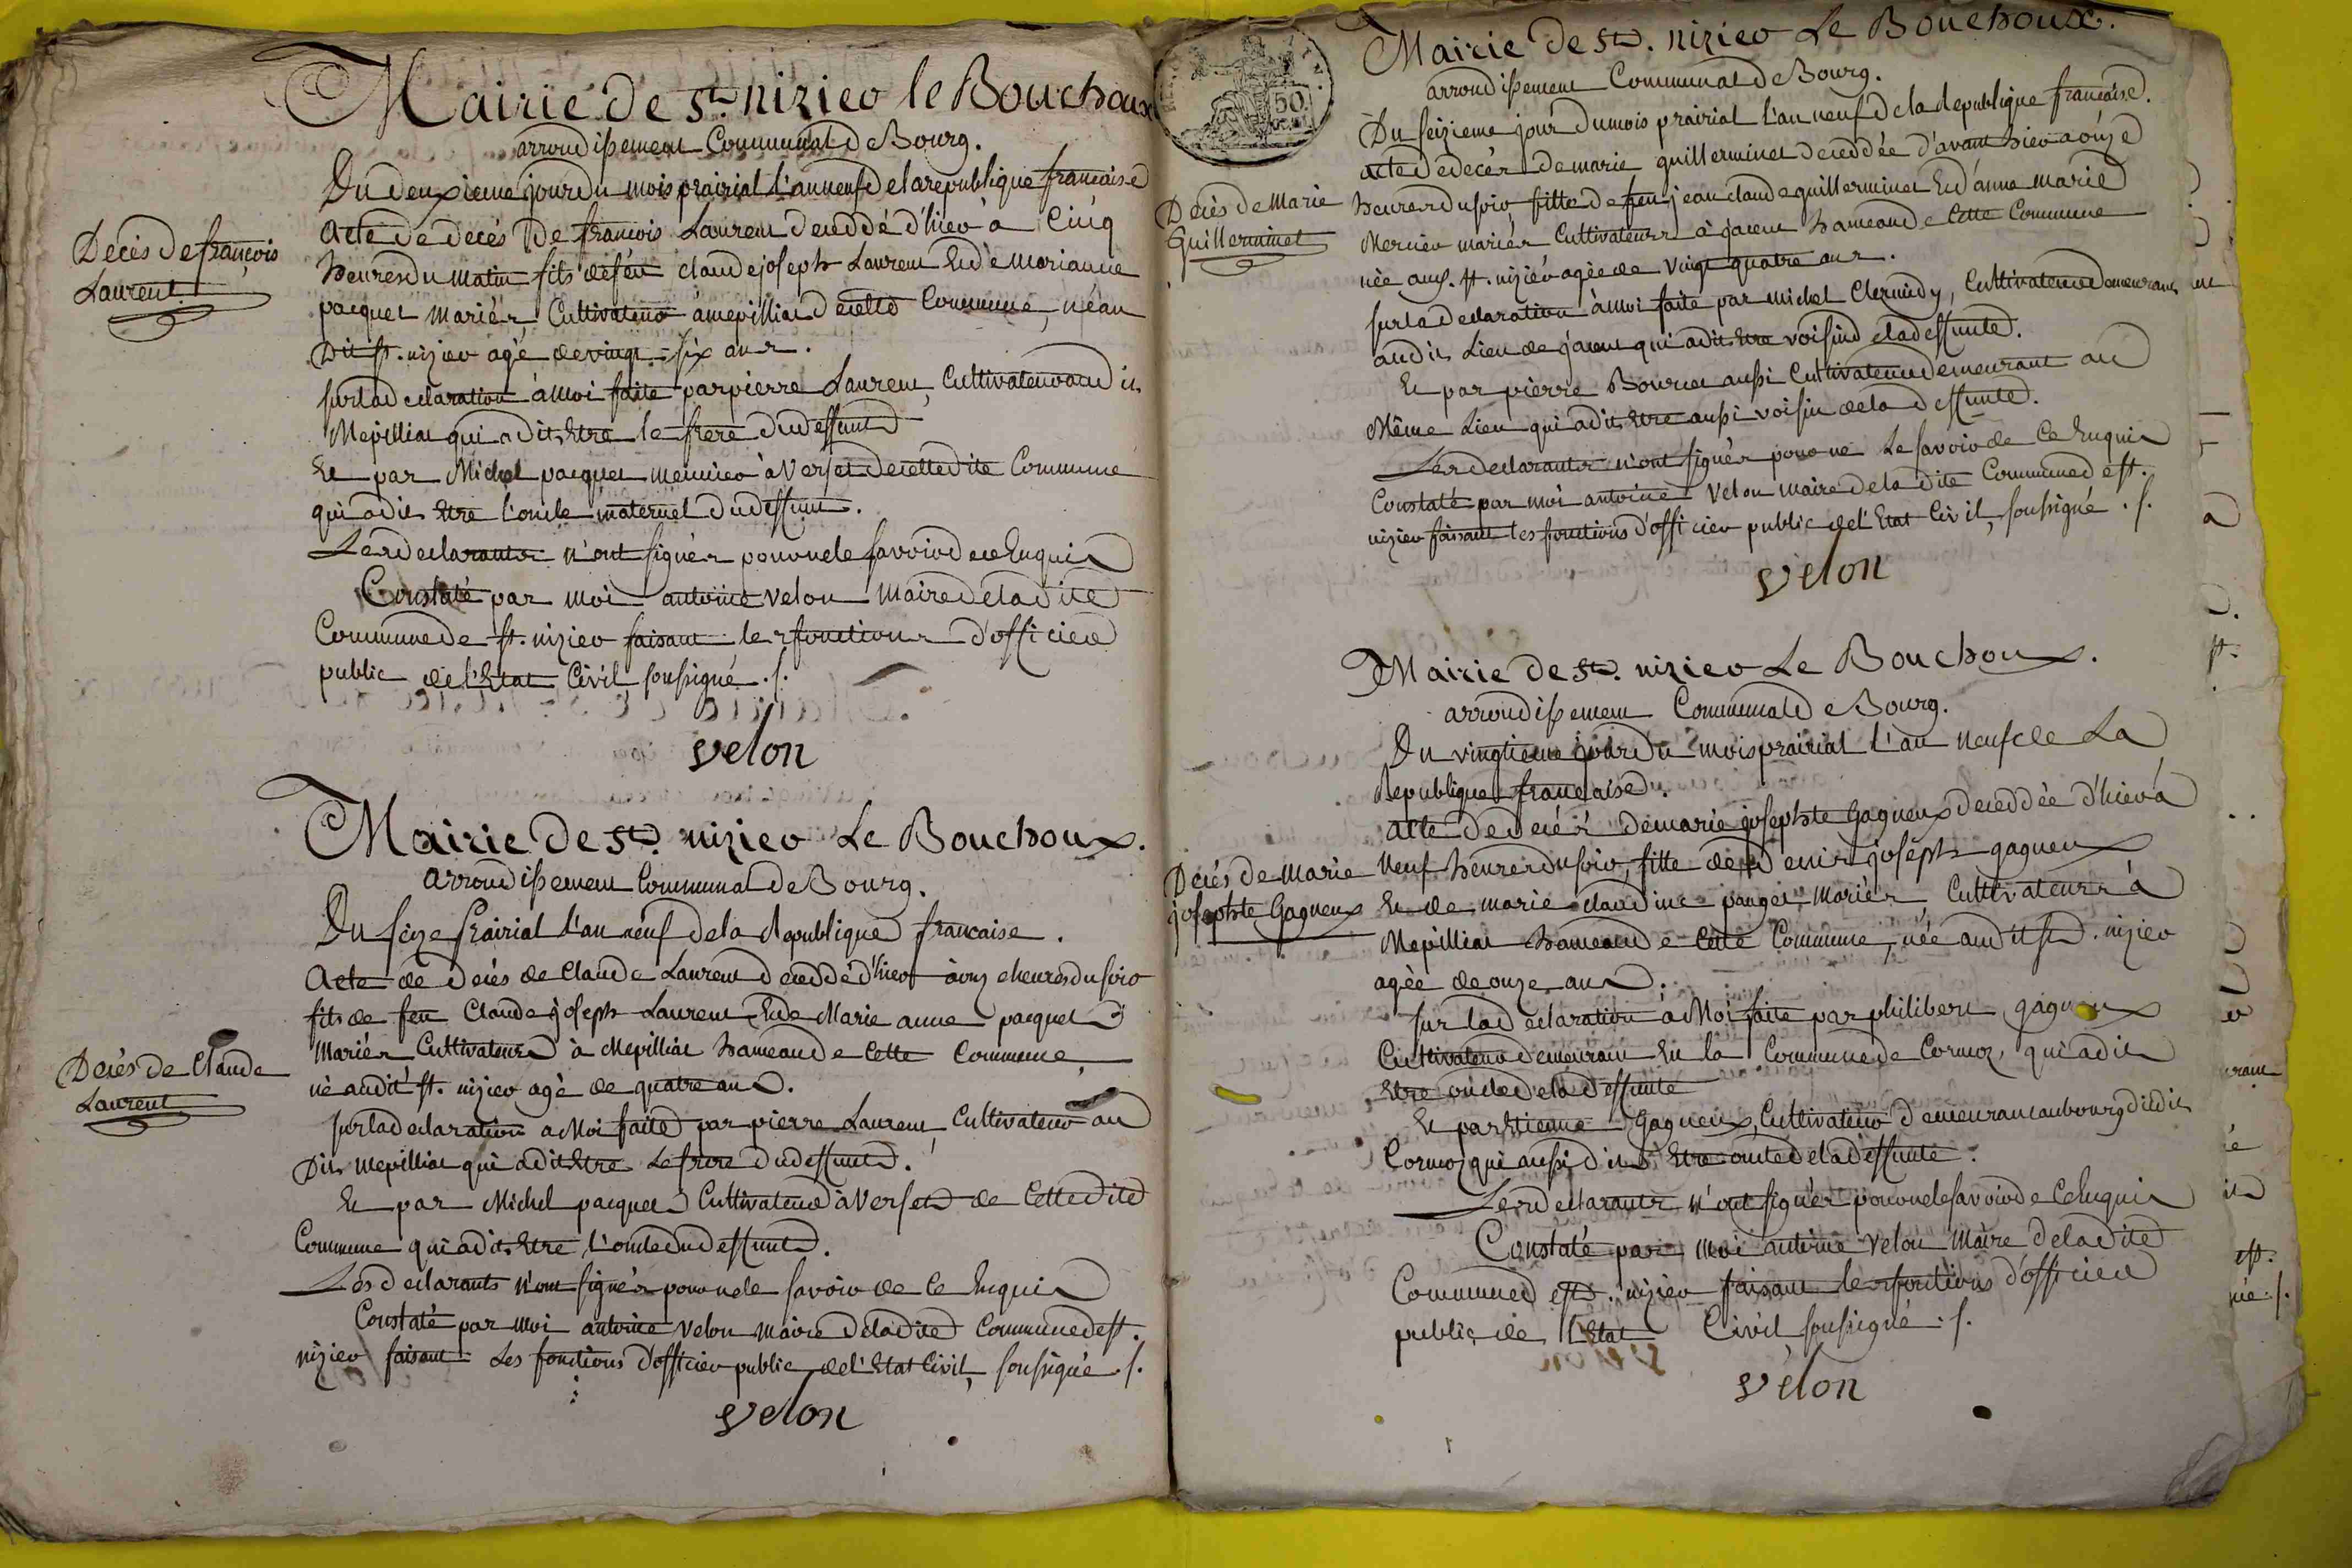 Mairie de St. nizier le Bouchoux
arrondissement Communal de Bourg.
Du deuxieme jour du mois prairial l'an neuf de la republique francaise
Acte de decés de francois Laurent deceddé d'hier à Cinq
heures du matin fils de feu claude joseph Laurent Et de marianne
pacquet mariés Cultivateurs à mepilliat de cette Commune, né au
Dit st. nizier agé de vingt-six ans.
Decès de françois
Laurent
sur la declaration à moi faite par pierre Laurent, Cultivateur au dit
Mepilliat qui a dit Etre le frere du deffunt
Et par Michel pacquet meunier à Verset de cette dite Commune
qui a dit Etre l'oncle maternel du deffunt.
Les declarants n'ont signés pour ne le savoir de ce Enquis
Constaté par moi antoine velon maire de la dite
Commune de st. nizier faisant les fonctions d'officier
public de l'Etat Civil, soussigné ./.
velon
Mairie de St. nizier Le Bouchoux.
arrondissement Communal de Bourg.
Du seize Prairial l'an neuf de la republique francaise.
Acte de decés de Claude Laurent deceddé d'hier à onze heures du soir
fils de feu Claude joseph Laurent Et de Marie anne pacquet
Mariés Cultivateurs à Mepilliat hameau de Cette Commune,
né au dit st. nizier agé de quatre ans.
Decés de Claude
Laurent
sur la declaration a Moi faite par pierre Laurent, Cultivateur au
Dit mepilliat qui a dit Etre Le frere du deffunt.
Et par Michel pacquet Cultivateur à Verset de Cette dite
Commune qui a dit Etre l'oncle du deffunt.
Les declarants n'ont signés pour ne le savoir de ce Enquis
Constaté par moi antoine velon maire de la dite Commune de st.
nizier faisant Les fonctions d'officier public de l'Etat Civil, soussigné ./.
velon
50
Mairie de St. nizier Le Bouchoux.
arrondissement Communal de Bourg.
Du seizieme jour du mois prairial l'an neuf de la republique francaise.
acte de decés de marie guillerminet deceddée d'avant hier a onze
heures du soir, fille de feu jean claude guillerminet Et d'anne marie
Mercier mariés Cultivateurs à jacent hameau de Cette Commune
née aud. st. nizier agée de vingt quatre ans.
Decès de Marie
Guillerminet
sur la declaration à moi faite par michel Clermidy, Cultivateur demeurant
au dit Lieu de jacent qui a dit Etre voisin de la deffunte.
Et par pierre Bourcet aussi Cultivateur demeurant au
Même Lieu qui a dit Etre aussi voisin de la deffunte.
Les declarants n'ont signés pour ne Le savoir de Ce Enquis
Constaté par moi antoine Velon maire de la dite Commune de st.
nizier faisant les fonctions d'officier public de l'Etat Civil, soussigné ./.
velon
Mairie de St. nizier Le Bouchoux.
arrondissement Communal de Bourg.
Du vingtieme jour du mois prairial l'an neuf de La
Republique francaise.
acte de decés de marie josephte Gagneux deceddée d'hier à
Neuf heures du soir, fille de denis joseph gagneux
Et de marie claudine panget Mariés, Cultivateurs à
Mepilliat hameau de Cette Commune, née au dit st. nizier
agée de onze ans.
Decés de Marie
josephte Gagneux
sur la declaration à Moi faite par philibert gagneux
Cultivateur demeurant En la Commune de Cormoz, qui a dit
Etre oncle de la deffunte
Et par Etienne Gagneux, Cultivateur demeurant au bourg du dit
Cormoz qui aussi dit Etre oncle de la deffunte.
Les declarants n'ont signés pour ne le savoir de Ce Enquis
Constaté par moi antoine Velon Maire de la dite
Commune de st. nizier faisant les fonctions d'officier
public de l'Etat Civil soussigné ./.
velon